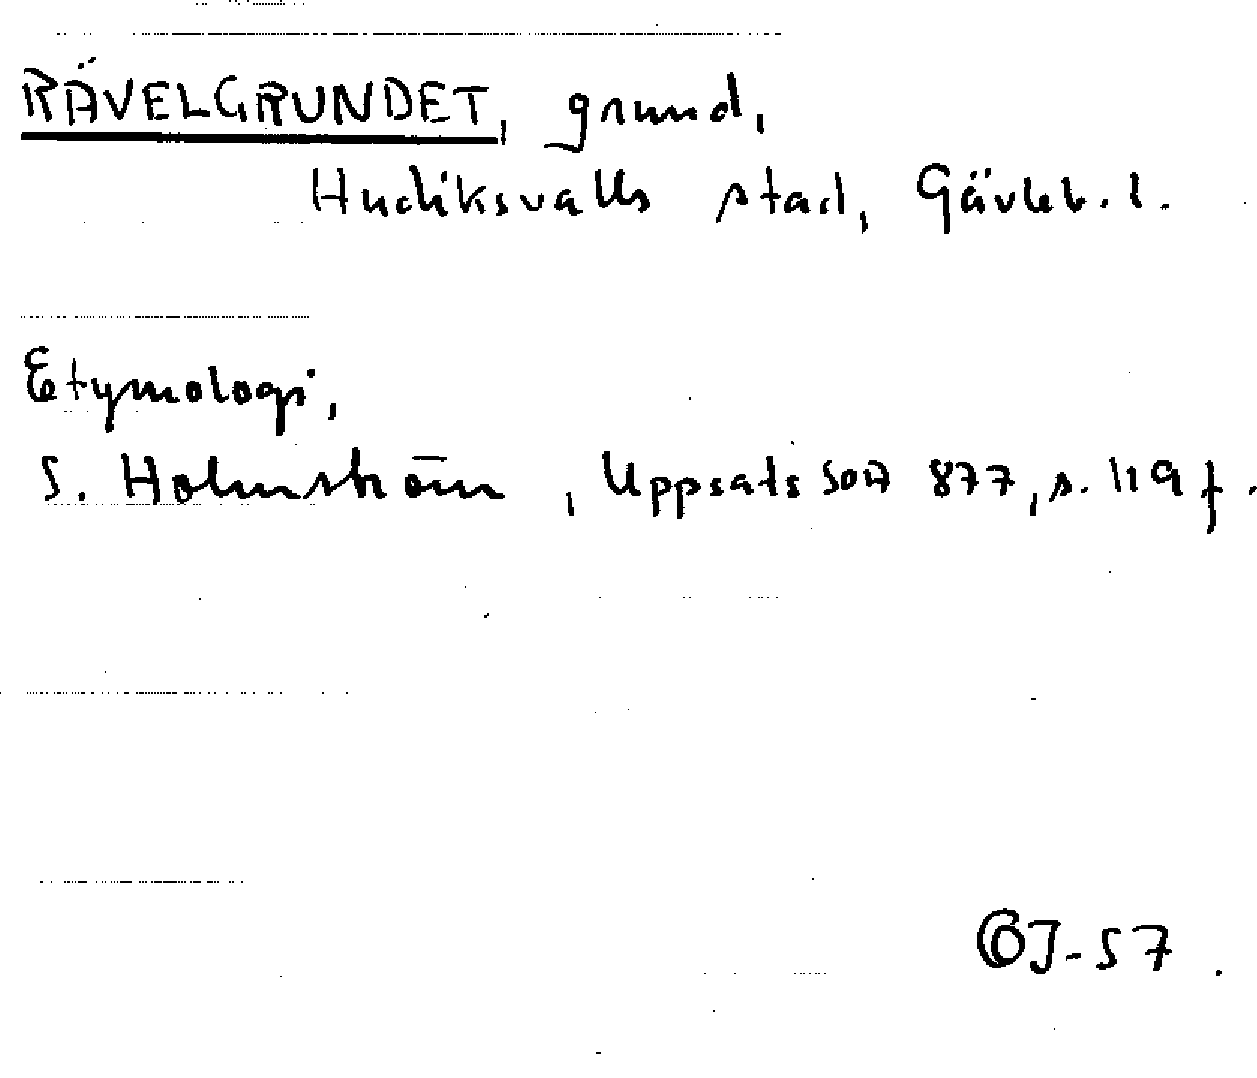 RÄVELGRUNDET, grund,
Hudiksvalls stad, Gävleb. l.
Etymologi,
S. Holmström, Uppsats SOA 877, s. 119 f.